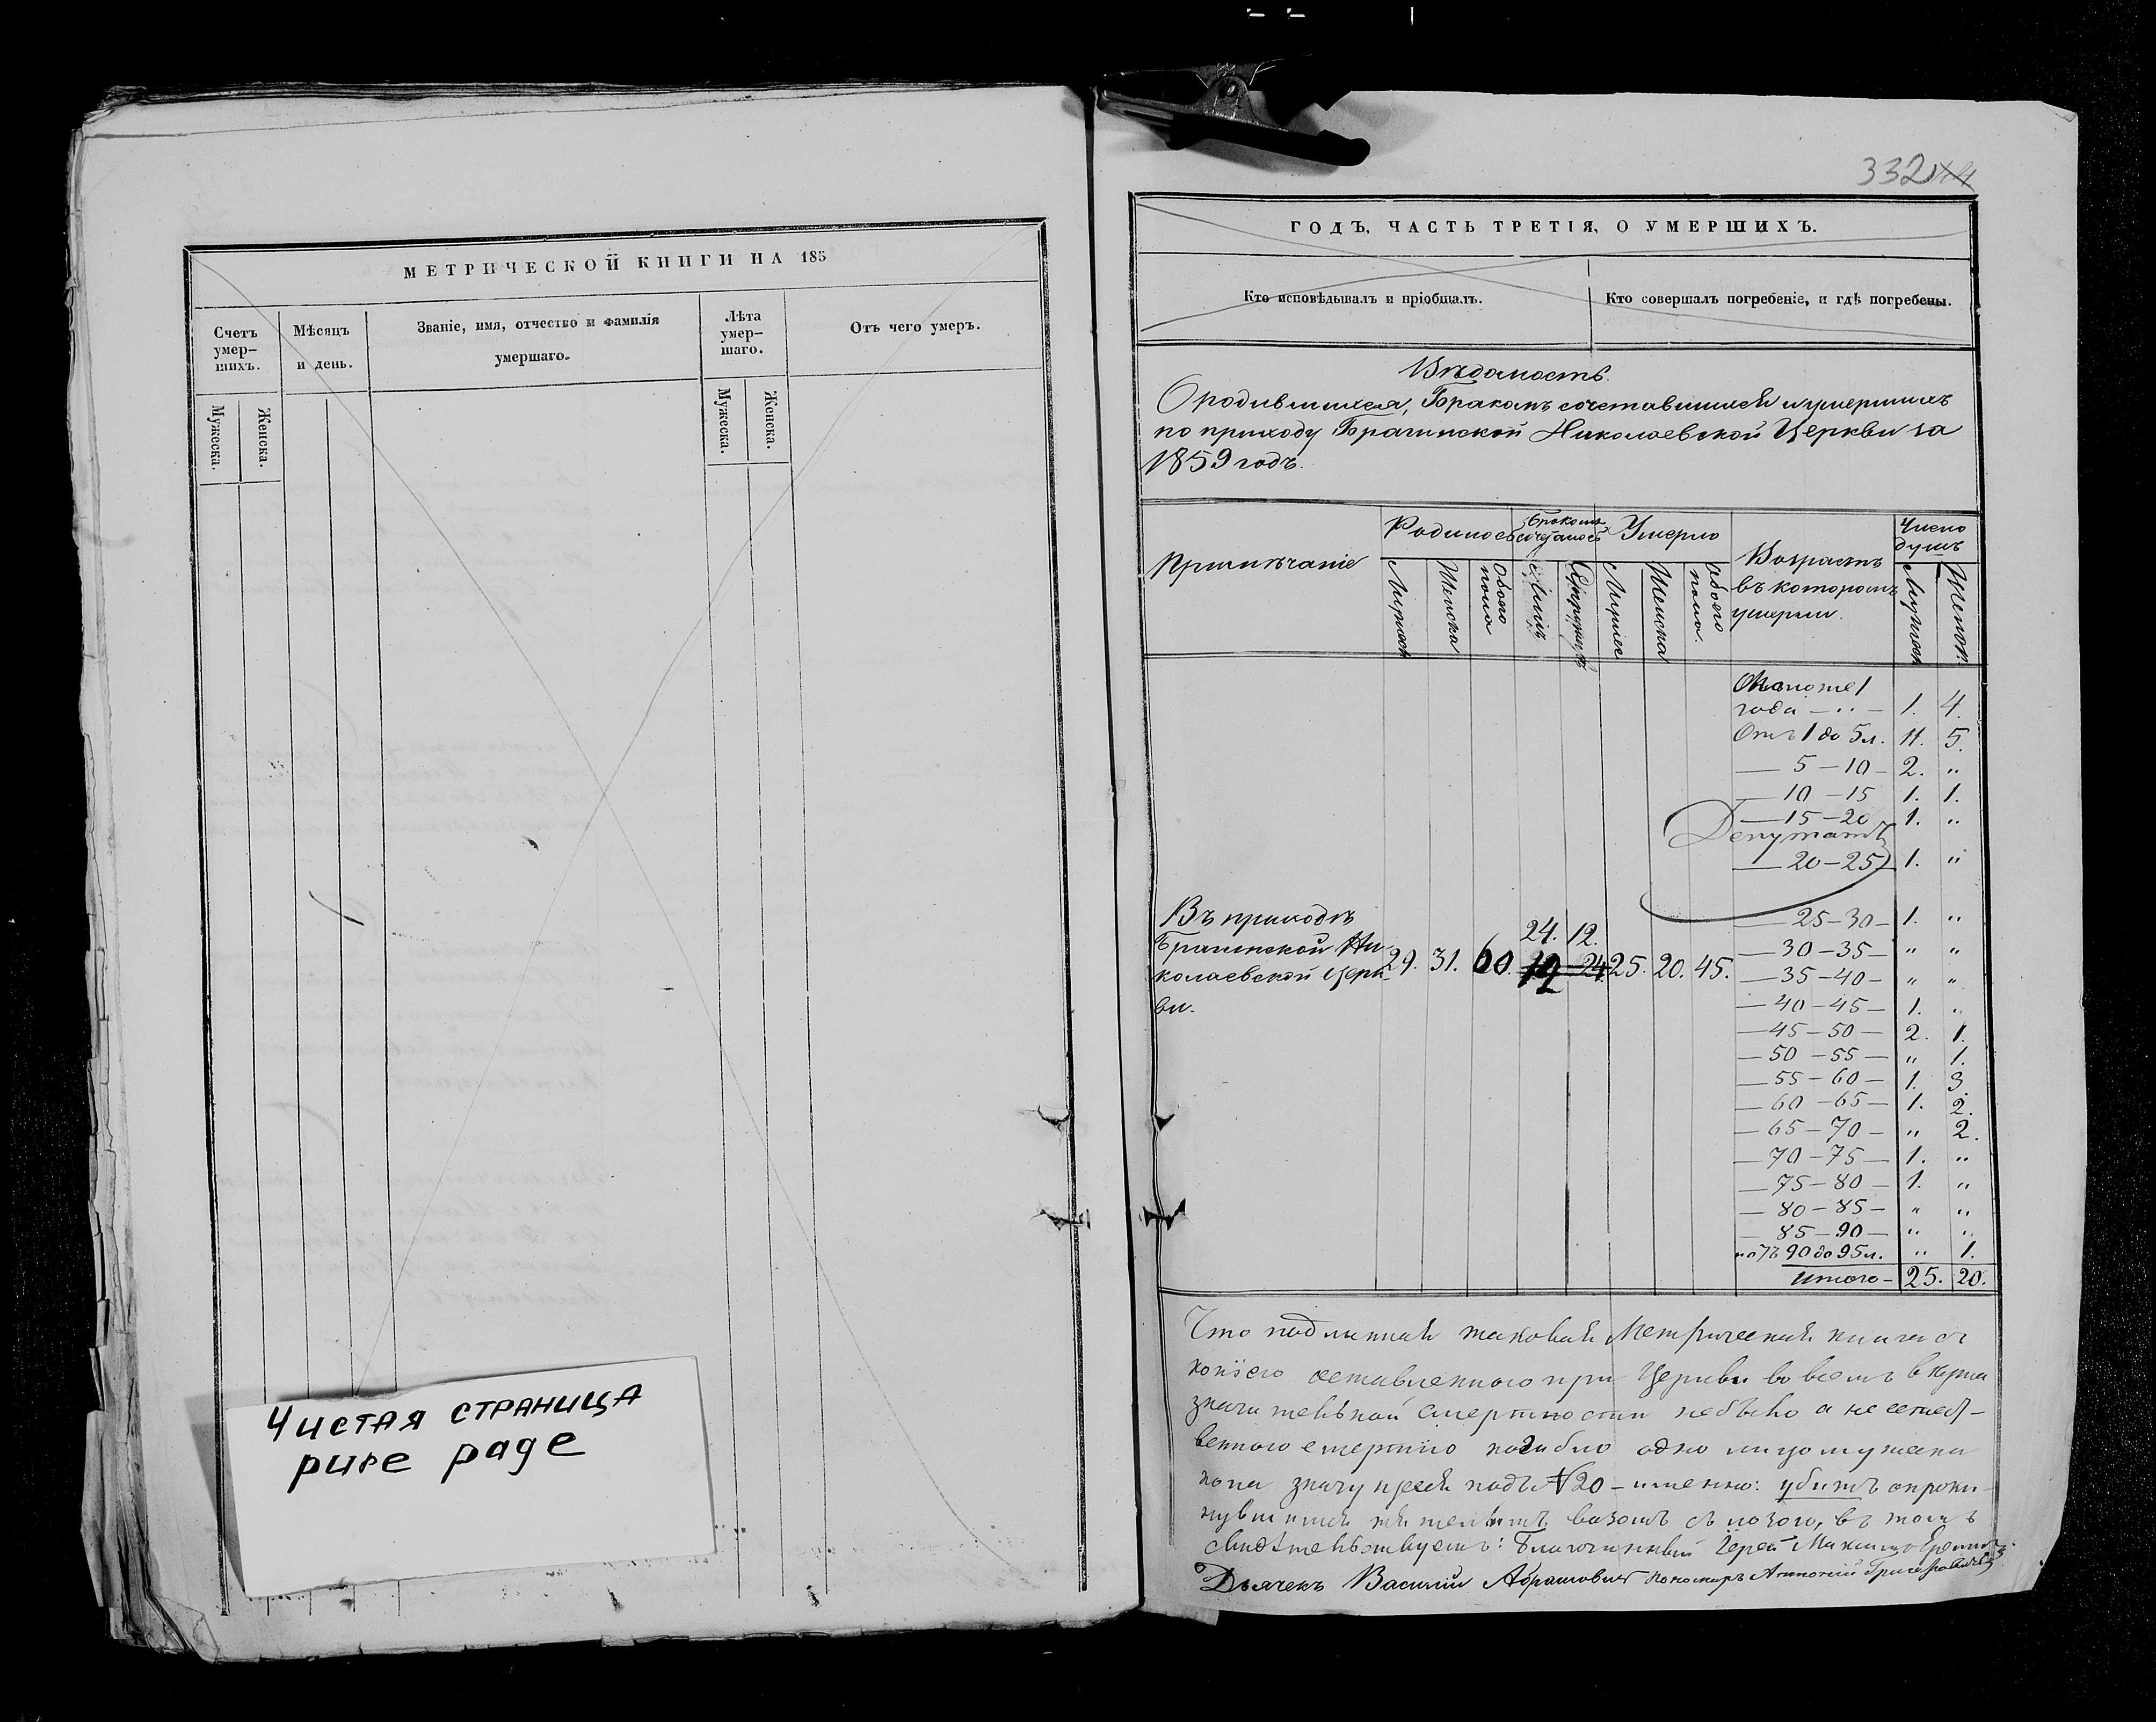 МЕТРИЧЕСКОЙ КНИГИ НА 185
Счетъ умер-шихъ.
Мѣсяцъ и день.
Званіе, имя, отчество и фамилія умершаго.
Лѣта умер-шаго.
Отъ чего умеръ.
Мужеска.
Женска.
Мужеска.
Женска.
Чистая страница
pure page
332
ГОДЪ, ЧАСТЬ ТРЕТІЯ, О УМЕРШИХЪ.
Кто исповѣдывалъ и пріобщалъ.
Кто совершалъ погребеніе, и гдѣ погребены.
Вѣдомость
О родившихся, Бракомъ сочетавшихся и умершихъ
по приходу Брагинской Николаевской Церкви за
1859 годъ.
Примѣчаніе
Родилось
Бракомъ сочеталось
Умерло
Возрастъ въ которомъ умерли.
Число душъ
Мужеск
Женска
Обоего пола
Лицъ
Супружествъ
Мужес
Женска
Обоего пола.
Мужеск
Женск.
года — „ — 1. 4.
Отъ 1 до 5 л. 11. 5.
— 5 — 10 — 2. „
— 10 — 15 1. 1.
— 15 — 20 1. „
Депутатъ
— 20 — 25 1. „
— 25 — 30 — 1. „
— 30 — 35 — „ „
— 35 — 40 — „ „
— 40 — 45 — 1. „
— 45 — 50 — 2. 1.
— 50 — 55 — „ 1.
— 55 — 60 — 1. 3.
— 60 — 65 — 1. 2.
— 65 — 70 — „ 2.
— 70 — 75 — 1. „
— 75 — 80 — 1. „
— 80 — 85 — „ „
— 85 — 90 — „ „
отъ 90 до 95 л. „ 1.
Итого — 25. 20.
Въ приходѣ
Брагинской Ни-
колаевской Церк-
ви.
24. 12.
29. 31. 60. 12 24. 25. 20. 45.
Что подлинная таковая Метрическая книга съ
копіею оставленного при Церкви во всемъ вѣрна
значительной смертности небыло а не естест-
венного смертію погибло одно лицо мужска
пола значущееся подъ №20 — именно: убитъ опроки-
нувшимся возомъ съ лозою, въ томъ
свидѣтельствуемъ: Благочинный Іерей Максимъ
Дьячекъ Василій Абрамовичъ Пономарь Антоній Григоровичъ